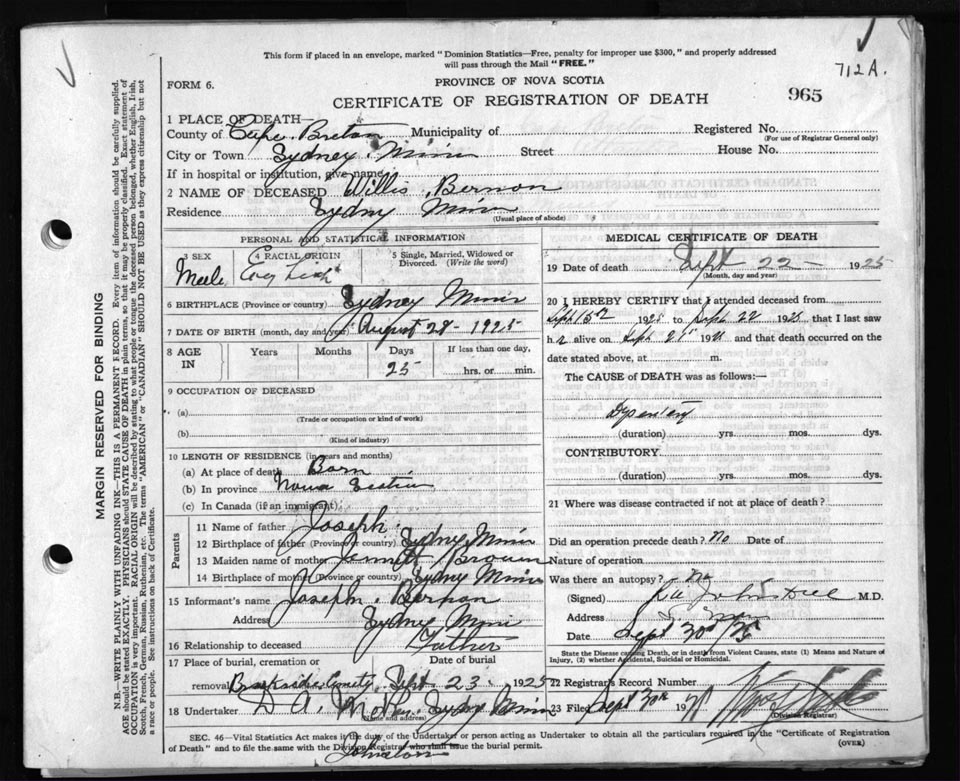 This form if placed in an envelope, marked "Dominion Statistics—Free, penalty for improper use $300," and properly addressed
will pass through the Mail "FREE."
712A.
FORM 6.
PROVINCE OF NOVA SCOTIA
CERTIFICATE OF REGISTRATION OF DEATH
965
1 PLACE OF DEATH—
County of Cape Breton Municipality of Registered No.
(For use of Registrar General only)
City or Town Sydney Mines Street House No.
If in hospital or institution, give name
2 NAME OF DECEASED Willis Bernon
Residence Sydny Mines
(Usual place of abode)
PERSONAL AND STATISTICAL INFORMATION
3 SEX 4 RACIAL ORIGIN 5 Single, Married, Widowed or Divorced. (Write the word)
Meele Eng Lish
6 BIRTHPLACE (Province or country) Sydney Mines
7 DATE OF BIRTH (month, day and year) August 28 - 1925
8 AGE IN Years Months Days If less than one day,
25 hrs. or min.
9 OCCUPATION OF DECEASED
(a)
(Trade or occupation or kind of work)
(b)
(Kind of industry)
10 LENGTH OF RESIDENCE (in years and months)
(a) At place of death Born
(b) In province Nova Scotia
(c) In Canada (if an immigrant)
Parents
11 Name of father Joseph
12 Birthplace of father (Province or country) Sydney Mines
13 Maiden name of mother Brown
14 Birthplace of mother (Province or country) Sydney Mines
15 Informant's name Joseph Bernon
Address Sydney Mines
16 Relationship to deceased Father
17 Place of burial, cremation or Date of burial
removal Brookside Cemety Sept 23 1925
18 Undertaker D A. Sydney Mines
(Name and address)
Johnston
MEDICAL CERTIFICATE OF DEATH
19 Date of death Sept 22 - 1925
(Month, day and year)
20 I HEREBY CERTIFY that I attended deceased from
Sept 15th 1925 to Sept 22 1925 that I last saw
h alive on Sept 21st 19 and that death occurred on the
date stated above, at m.
The CAUSE of DEATH was as follows:—
Dysentery
(duration) yrs. mos. dys.
CONTRIBUTORY
(duration) yrs. mos. dys.
21 Where was disease contracted if not at place of death?
Did an operation precede death? No Date of
Nature of operation
Was there an autopsy? no
(Signed) M.D.
Address
Date Sept 30 / 25
State the Disease causing Death, or in death from Violent Causes, state (1) Means and Nature of
Injury, (2) whether Accidental, Suicidal or Homicidal.
22 Registrar's Record Number
23 Filed Sept 30th 19
(Division Registrar)
SEC. 46—Vital Statistics Act makes it the duty of the Undertaker or person acting as Undertaker to obtain all the particulars required in the "Certificate of Registration
of Death" and to file the same with the Division Registrar who shall issue the burial permit.
(OVER)
MARGIN RESERVED FOR BINDING
N.B.—WRITE PLAINLY WITH UNFADING INK—THIS IS A PERMANENT RECORD. Every item of information should be carefully supplied.
AGE should be stated EXACTLY. PHYSICIANS should STATE CAUSE OF DEATH in plain terms, so that it may be properly classified. Exact statement of
OCCUPATION is very important. RACIAL ORIGIN will be described by stating to what people or tongue the deceased person belonged, whether English, Irish,
Scotch, French, German, Russian, Ruthenian, etc. The terms "AMERICAN" or "CANADIAN" SHOULD NOT BE USED as they express citizenship but not
a race or people. See instructions on back of Certificate.